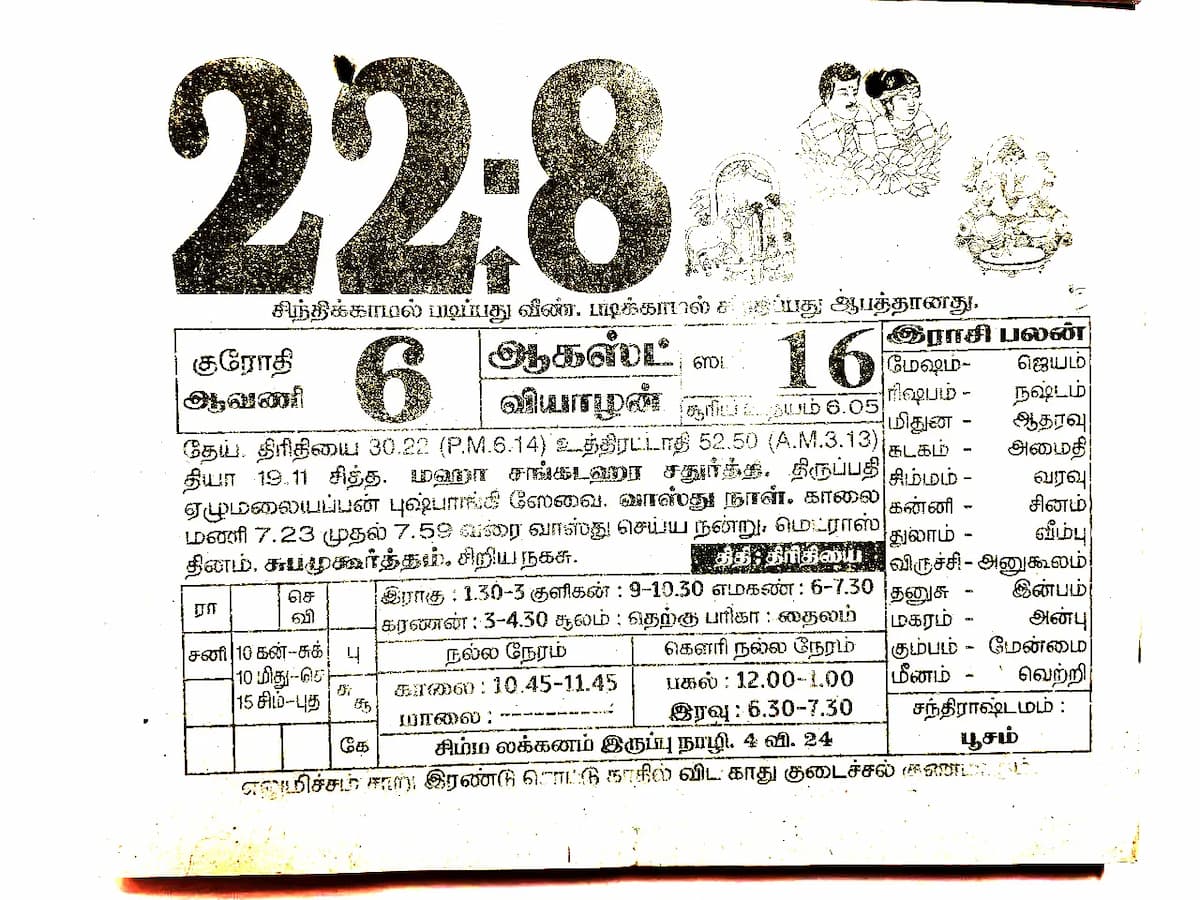 22-8
சிந்திக்காமல் படிப்பது வீண். படிக்காமல் சிந்திப்பது ஆபத்தானது.
குரோதி
ஆவணி
6
ஆகஸ்ட்
வியாழன்
16
சூரிய உதயம் 6.05
தேய். திரிதியை 30.22 (P.M.6.14) உத்திரட்டாதி 52.50 (A.M.3.13)
தியா 19.11 சித்த. மஹா சங்கடஹர சதுர்த்தி. திருப்பதி
ஏழுமலையப்பன் புஷ்பாங்கி ஸேவை. வாஸ்து நாள். காலை
மணி 7.23 முதல் 7.59 வரை வாஸ்து செய்ய நன்று, மெட்ராஸ்
தினம், சுபமுகூர்த்தம், சிறிய நகசு.
திதி : திரிதியை
இராசி பலன்
மேஷம்- ஜெயம்
ரிஷபம் - நஷ்டம்
மிதுன - ஆதரவு
கடகம் - அமைதி
சிம்மம் - வரவு
கன்னி - சினம்
துலாம் - வீம்பு
விருச்சி- அனுகூலம்
தனுசு - இன்பம்
மகரம் - அன்பு
கும்பம் - மேன்மை
மீனம் - வெற்றி
சந்திராஷ்டமம் :
பூசம்
ரா
செ
வி
சனி
10 கன்-சுக்
10 மிது-செ
15 சிம்-புத
பு
சு
சூ
கே
இராகு : 1.30-3 குளிகன் : 9-10.30 எமகண் : 6-7.30
கரணன் : 3-4.30 சூலம் : தெற்கு பரிகா : தைலம்
நல்ல நேரம்
கௌரி நல்ல நேரம்
காலை : 10.45-11.45
பகல் : 12.00-1.00
மாலை : ----------
இரவு : 6.30-7.30
சிம்ம லக்கனம் இருப்பு நாழி. 4 வி. 24
எலுமிச்சம் சாறு இரண்டு சொட்டு காதில் விட காது குடைச்சல்